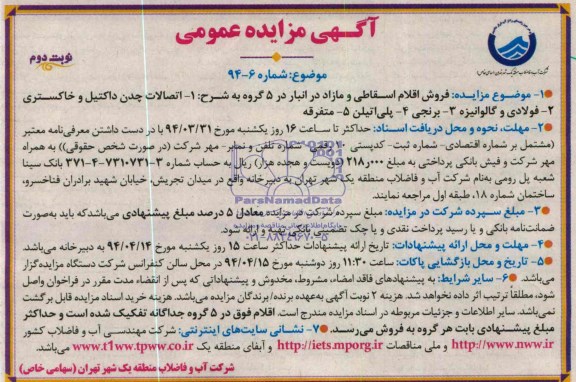 آگهی مزایده عمومی
نوبت دوم
موضوع: شماره ۶-۹۴
۱- موضوع مزایـده: فروش اقلام اسقاطی و مازاد در انبار در ۵ گروه به شرح: ۱- اتصالات چدن داکتیل و خاکستری
۲- فولادی و گالوانیزه ۳- برنجی ۴- پلی‌اتیلن ۵- متفرقه
۲- مهلت، نحوه و محل دریافت اسـناد: حداکثر تا ساعت ۱۶ روز یکشنبه مورخ ۹۴/۰۳/۳۱ با در دست داشتن معرفی‌نامه معتبر
(مشتمل بر شماره اقتصادی- شماره ثبت- کدپستی ۱۰ رقمی- شماره تلفن و نمابر- مهر شرکت (در صورت شخص حقوقی)) به همراه
مهر شرکت و فیش بانکی پرداختی به مبلغ ۲۱۸٫۰۰۰ (دویست و هجده هزار) ریال به حساب شماره ۳-۷۳۱۰۷۳۱-۴-۳۷۱ بانک سینا
شعبه پل رومی به‌نام شرکت آب و فاضلاب منطقه یک شهر تهران به دبیرخانه واقع در میدان تجریش، خیابان شهید برادران فناخسرو،
ساختمان شماره ۱۸، طبقه اول مراجعه نمایند.
۳- مبلغ سـپرده شرکت در مزایده: مبلغ سپرده شرکت در مزایده معادل ۵ درصد مبلغ پیشنهادی می‌باشد که باید به‌صورت
ضمانت‌نامه بانکی و یا رسید پرداخت نقدی و یا چک تضمینی بانکی تهیه و ارائه شود.
۴- مهلت و محل ارائه پیشنهادات: تاریخ ارائه پیشنهادات حداکثر ساعت ۱۵ روز یکشنبه مورخ ۹۴/۰۴/۱۴ به دبیرخانه می‌باشد.
۵- تاریخ و محل بازگشایی پاکات: ساعت ۱۱:۳۰ روز دوشنبه مورخ ۹۴/۰۴/۱۵ در محل سالن کنفرانس شرکت دستگاه مزایده‌گزار
می‌باشد. ۶- سایر شرایط: به پیشنهادهای فاقد امضاء، مشروط، مخدوش و پیشنهاداتی که پس از انقضاء مدت مقرر در فراخوان واصل
شود، مطلقاً ترتیب اثر داده نخواهد شد. هزینه ۲ نوبت آگهی به‌عهده برنده/برندگان مزایده می‌باشد. هزینه خرید اسناد مزایده قابل برگشت
نمی‌باشد. سایر اطلاعات و جزئیات مربوطه در اسناد مزایده مندرج است. اقلام فوق در ۵ گروه جداگانه تفکیک شده است و حداکثر
مبلغ پیشنهادی بابت هر گروه به فروش می‌رسـد. ۷- نشـانی سایت‌های اینترنتی: شرکت مهندسی آب و فاضلاب کشور
http://www.nww.ir و ملی مناقصات http://iets.mporg.ir و آبفای منطقه یک www.t1ww.tpww.co.ir می‌باشد.
شرکت آب و فاضلاب منطقه یک شهر تهران (سهامی خاص)
ParsNamadData
۰۲۱-۸۸۳۴۹۶۷۰-۵